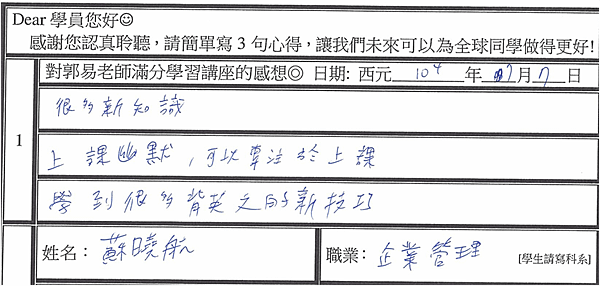 Dear 學員您好☺
感謝您認真聆聽，請簡單寫 3 句心得，讓我們未來可以為全球同學做得更好!
對郭易老師滿分學習講座的感想◎ 日期: 西元 104 年 07 月 7 日
1
很多新知識
上課幽默，可以專注於上課
學到很多背英文的新技巧
姓名： 蘇曉航
職業： 企業管理 [學生請寫科系]